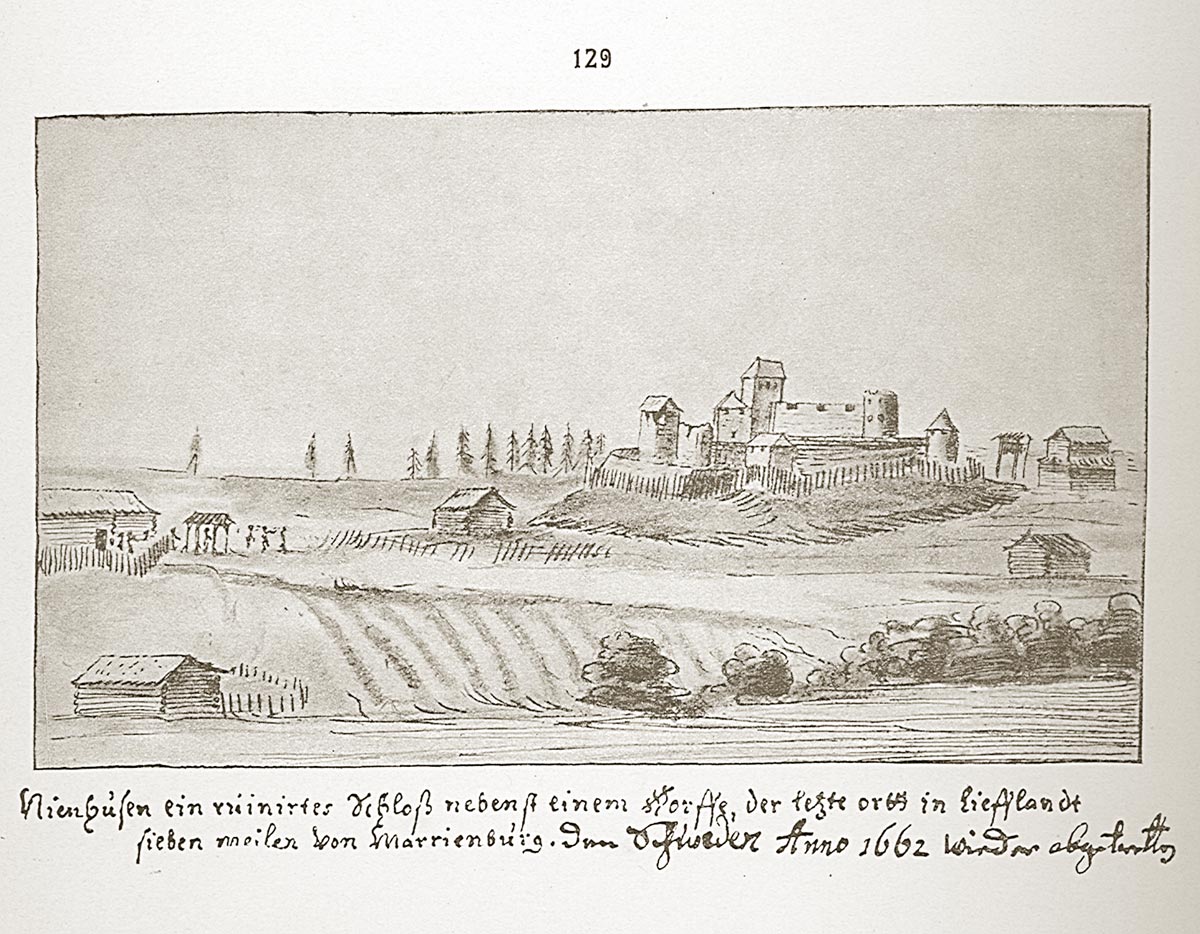 129
Nienhüsen ein ruinirtes Schloß nebenst einem Dorffe, der letzte ortt in Liefflandt
sieben meilen von Marrienbürg. Den Schweden Anno 1662 wieder abgetretten